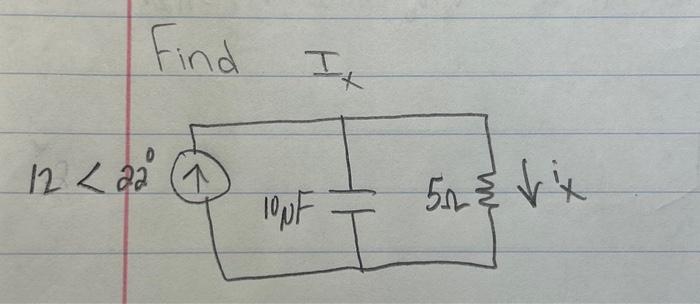 Find Ix
12 < 22°
10μF
5Ω
ix